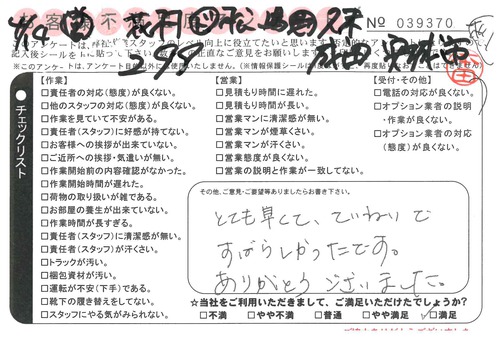 No 039370
【作業】
□責任者の対応(態度)が良くない。
□他のスタッフの対応(態度)が良くない。
□作業を見ていて不安がある。
□責任者(スタッフ)に好感が持てない。
□お客様への挨拶が出来ていない。
□ご近所への挨拶・気遣いが無い。
□作業開始前の内容確認がなかった。
□作業開始時間が遅れた。
□荷物の取り扱いが雑である。
□お部屋の養生が出来ていない。
□作業時間が長すぎる。
□責任者(スタッフ)に清潔感が無い。
□責任者(スタッフ)が汗くさい。
□トラックが汚い。
□梱包資材が汚い。
□運転が不安(下手)である。
□靴下の履き替えをしてない。
□スタッフにやる気がみられない。
【営業】
□見積もり時間に遅れた。
□見積もり時間が長い。
□営業マンに清潔感が無い。
□営業マンが煙草くさい。
□営業マンが汗くさい。
□営業態度が良くない。
□営業の説明と作業が一致してない。
【受付・その他】
□電話の対応が良くない。
□オプション業者の説明
・作業が良くない。
□オプション業者の対応
(態度)が良くない。
チェックリスト
その他、ご意見・ご要望等ありましたらお書き下さい。
とても早くて、ていねいで
すばらしかったです。
ありがとうございました。
☆当社をご利用いただきまして、ご満足いただけたでしょうか?
□不満 □やや不満 □普通 □やや満足 ☑満足